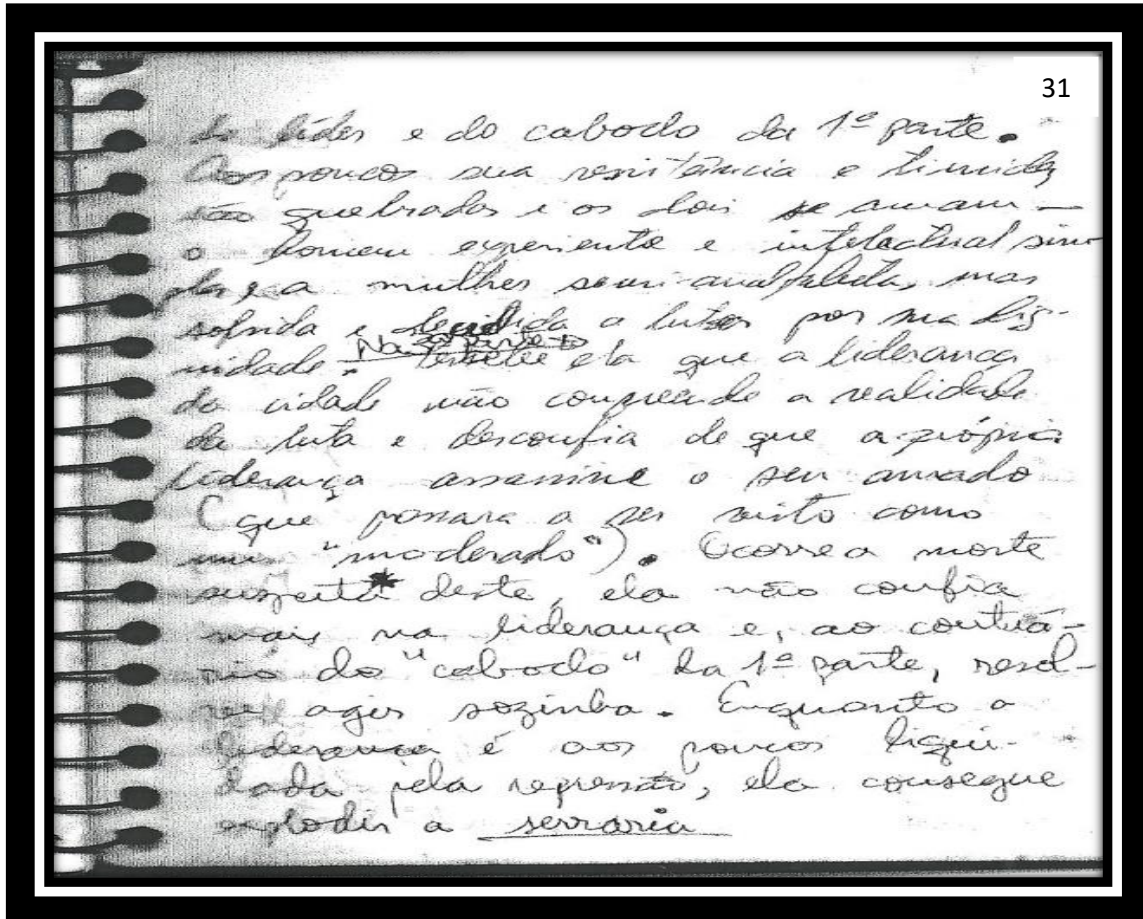 31
do líder e do caboclo da 1ª parte.
Aos poucos sua resistência e timidez
são quebradas e os dois se amam –
o homem experiente e intelectual
e a mulher semi-analfabeta, mas
sofrida e decidida a lutar por sua dig-
nidade. Na 2ª parte ela que a liderança
da cidade não compreende a realidade
da luta e desconfia de que a própria
liderança assassine o seu amado
(que passara a ser visto como
um "moderado"). Ocorre a morte
suspeita* deste, ela não confia
mais na liderança e, ao contrá-
rio do "caboclo" da 1ª parte, resol-
ve agir sozinha. Enquanto a
liderança é aos poucos liqui-
dada pela repressão, ela consegue
explodir a serraria